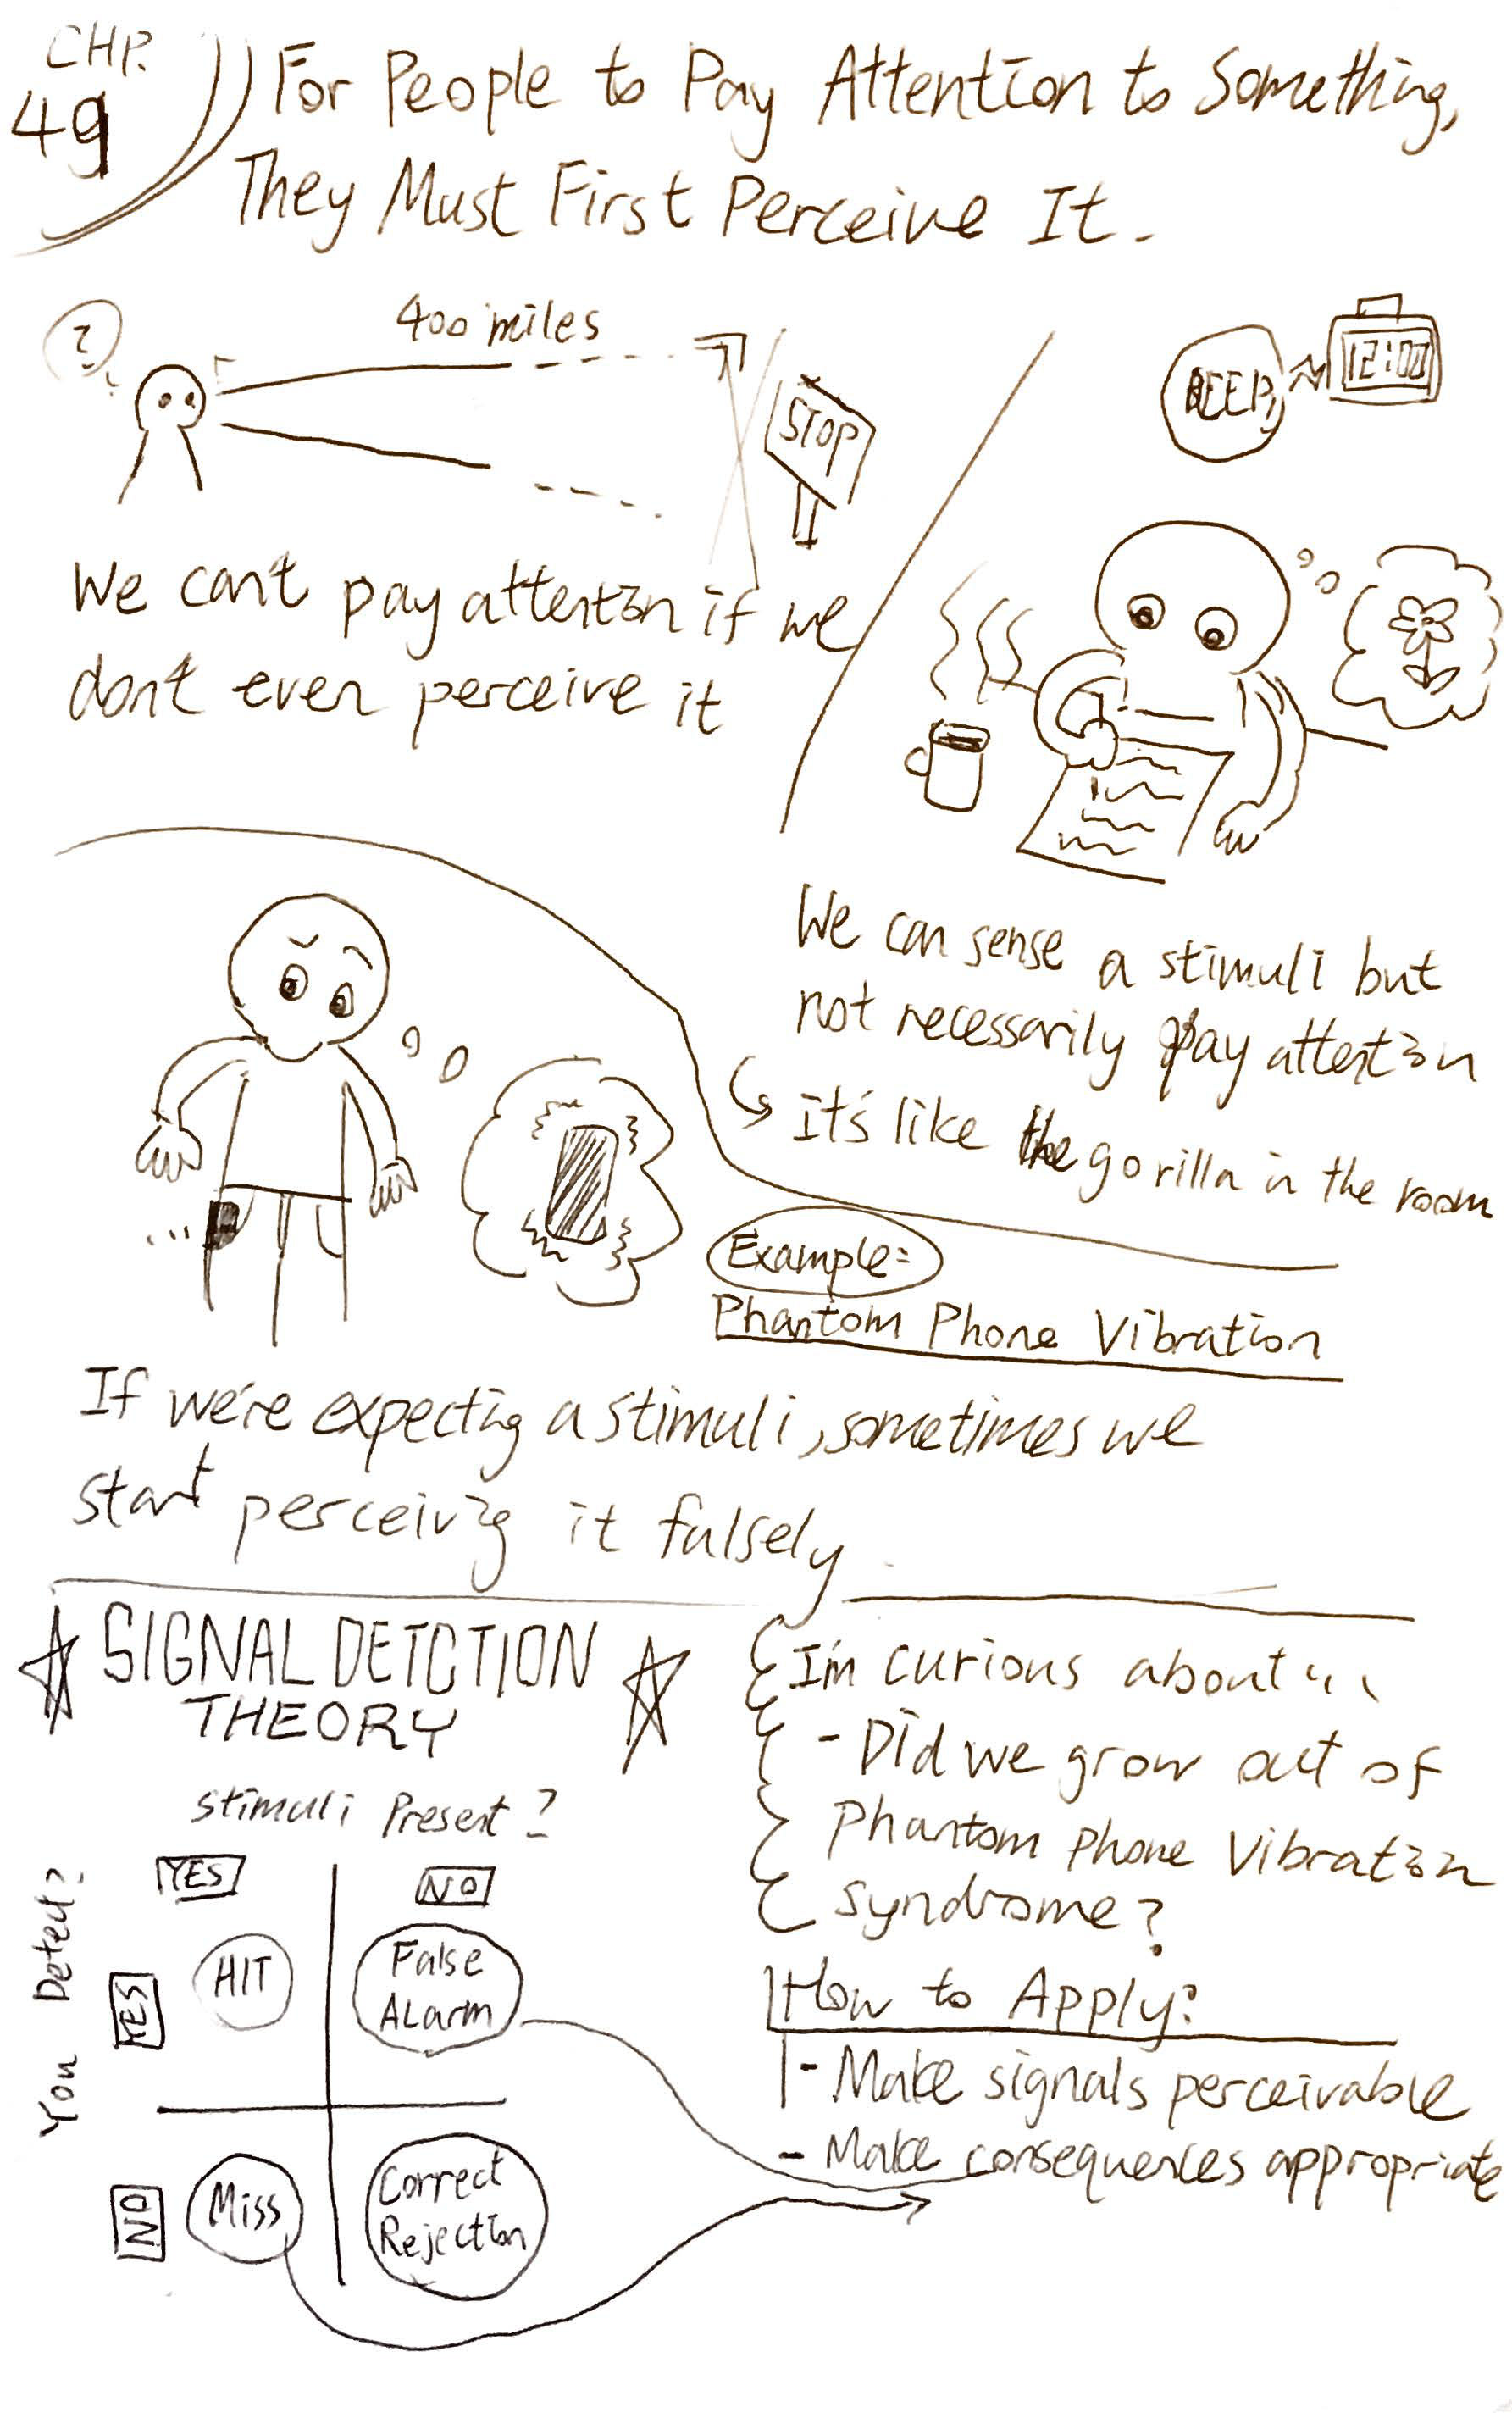 CHP.
49
For People to Pay Attention to Something,
They Must First Perceive It.
?
400 miles
STOP
We can't pay attention if we
don't even perceive it
BEEP
12:00
We can sense a stimuli but
not necessarily pay attention
it's like the gorilla in the room
...
Example:
Phantom Phone Vibration
If we're expecting a stimuli, sometimes we
start perceiving it falsely
SIGNAL DETCTION
THEORY
Stimuli Present?
YES
NO
You Detect?
YES
HIT
False
Alarm
NO
Miss
Correct
Rejection
I'm curious about...
- Did we grow out of
Phantom Phone Vibration
Syndrome?
How to Apply?
- Make signals perceivable
- Make consequences appropriate